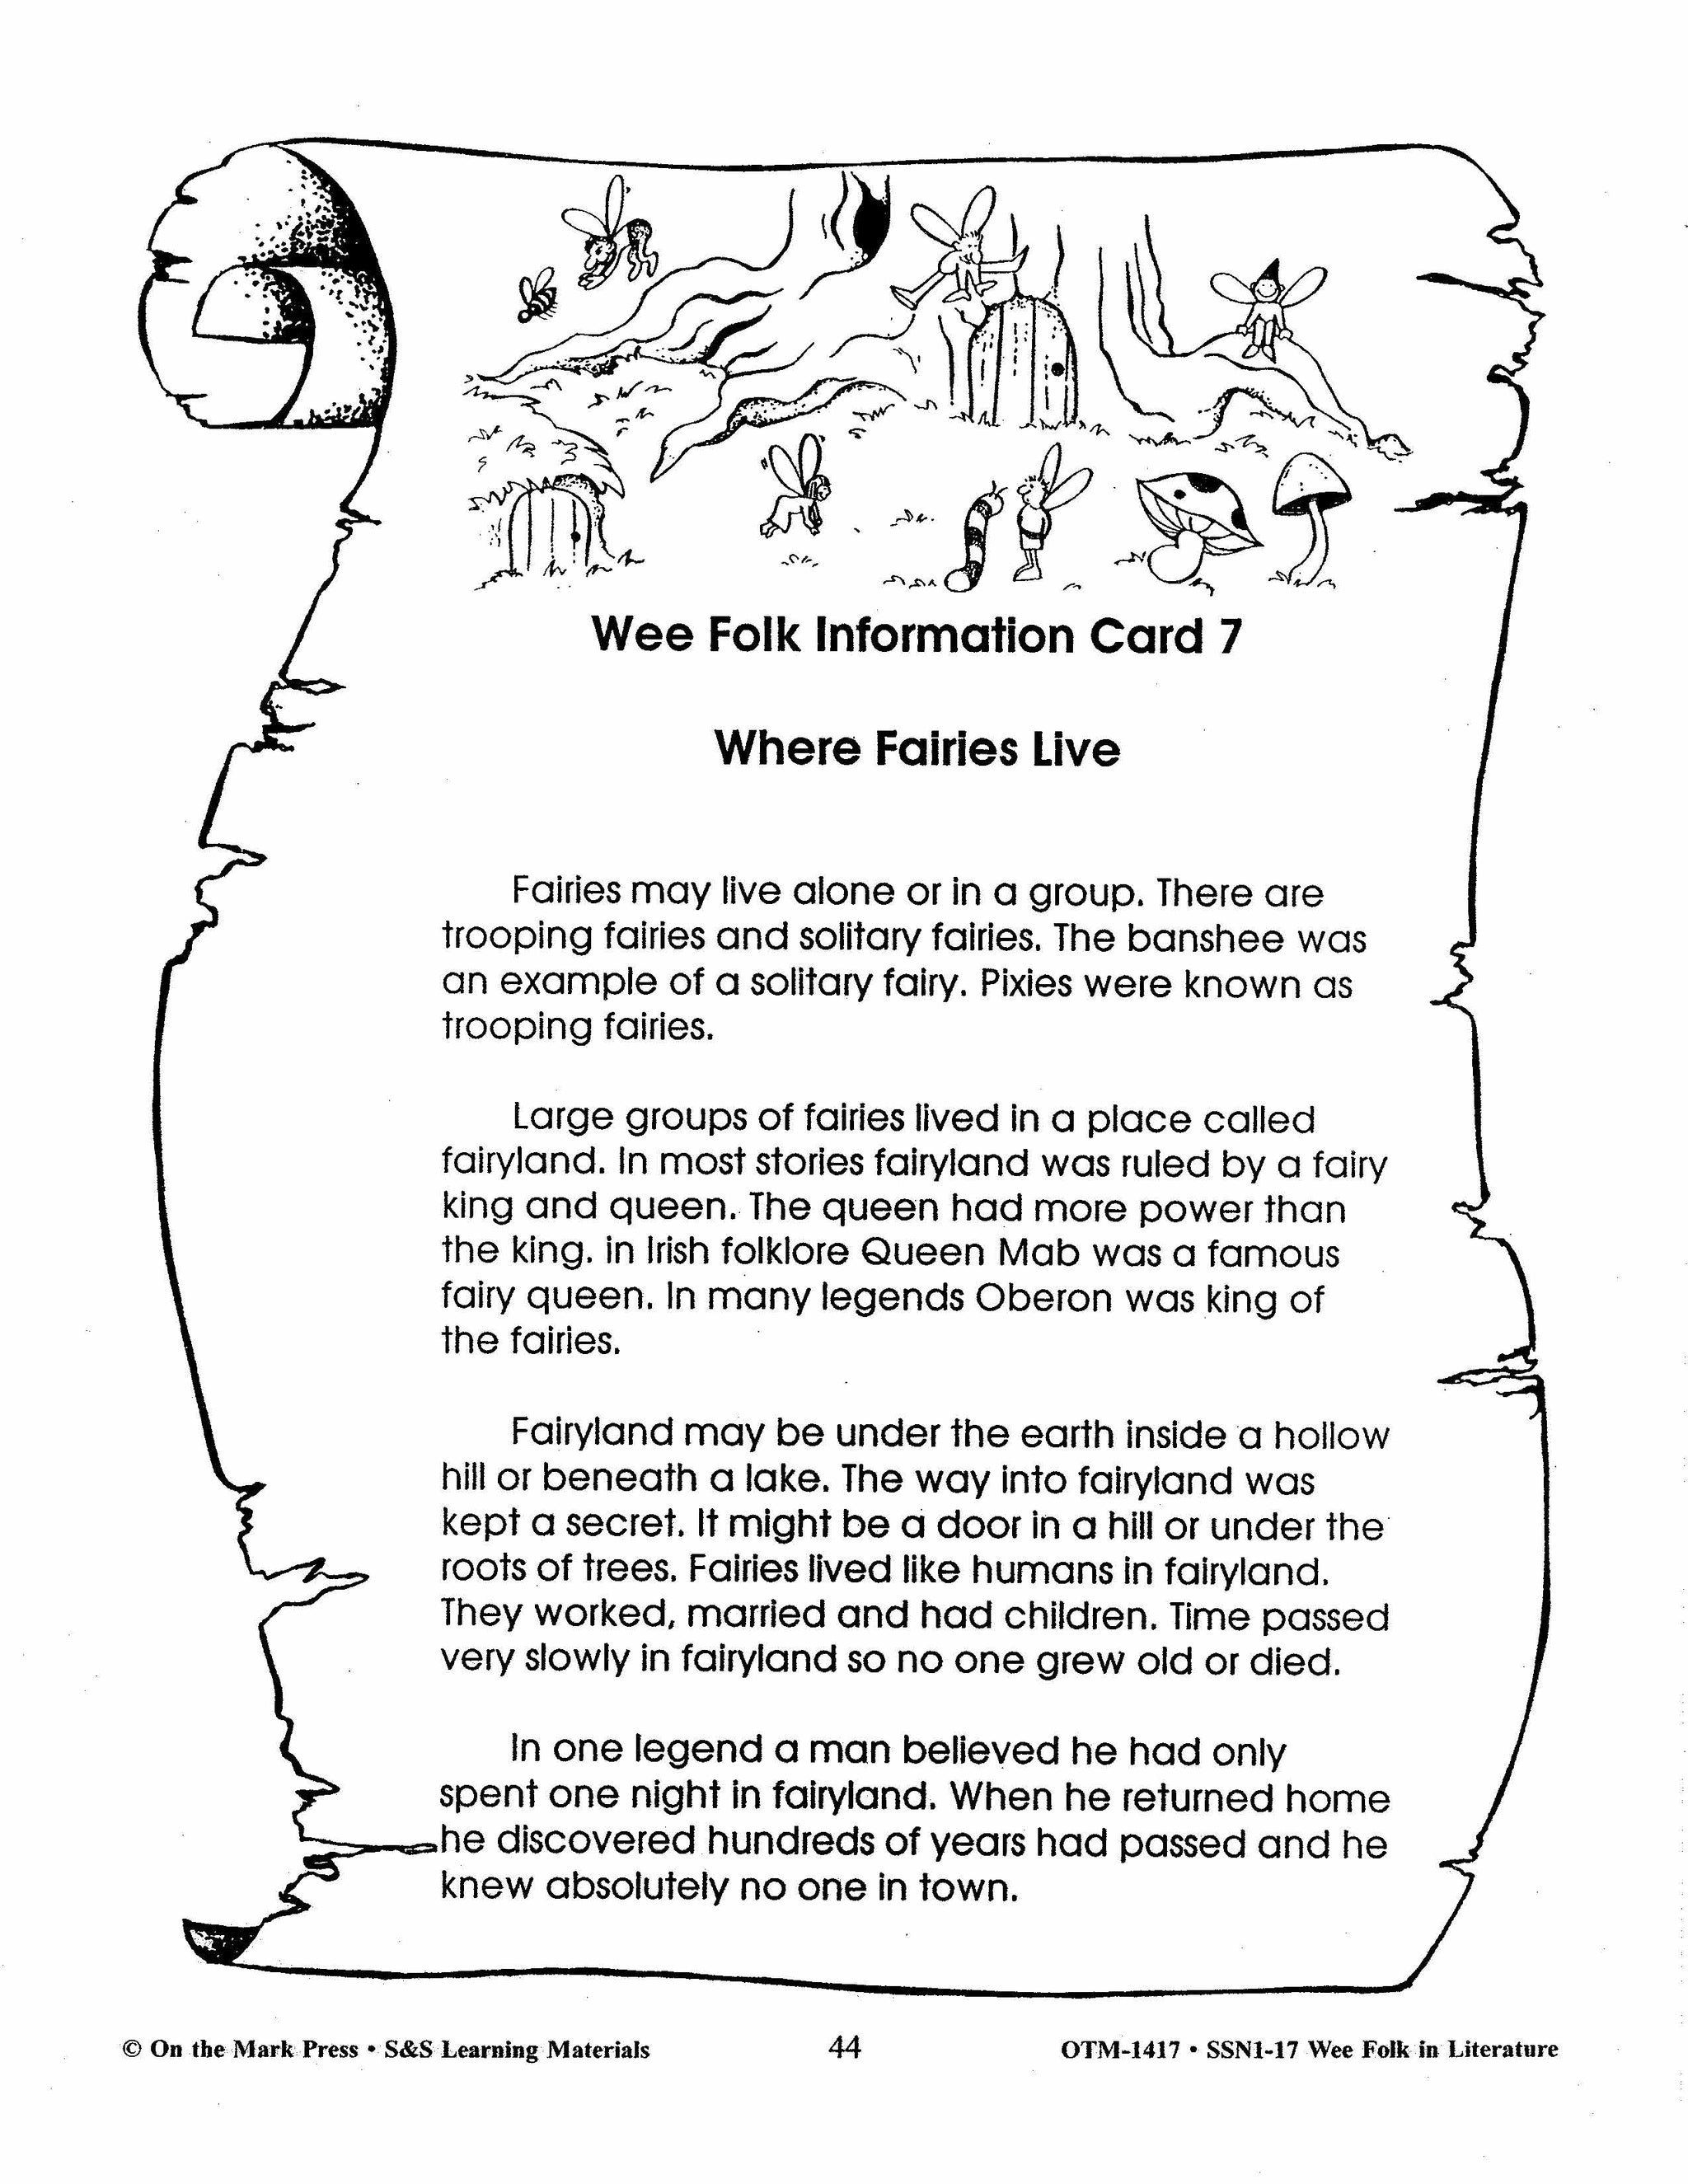 Wee Folk Information Card 7
Where Fairies Live
Fairies may live alone or in a group. There are
trooping fairies and solitary fairies. The banshee was
an example of a solitary fairy. Pixies were known as
trooping fairies.
Large groups of fairies lived in a place called
fairyland. In most stories fairyland was ruled by a fairy
king and queen. The queen had more power than
the king. in Irish folklore Queen Mab was a famous
fairy queen. In many legends Oberon was king of
the fairies.
Fairyland may be under the earth inside a hollow
hill or beneath a lake. The way into fairyland was
kept a secret. It might be a door in a hill or under the
roots of trees. Fairies lived like humans in fairyland.
They worked, married and had children. Time passed
very slowly in fairyland so no one grew old or died.
In one legend a man believed he had only
spent one night in fairyland. When he returned home
he discovered hundreds of years had passed and he
knew absolutely no one in town.
© On the Mark Press • S&S Learning Materials 44 OTM-1417 • SSN1-17 Wee Folk in Literature